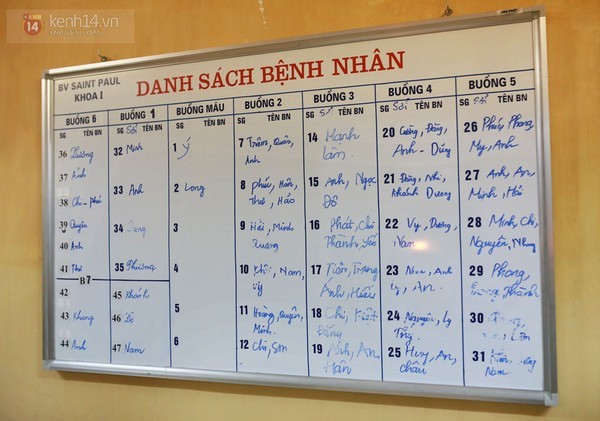 14 kenh14.vn
BV SAINT PAUL
KHOA I
DANH SÁCH BỆNH NHÂN
BUỒNG 6 BUỒNG 1 BUỒNG MÁU BUỒNG 2 BUỒNG 3 BUỒNG 4 BUỒNG 5
SG TÊN BN SG Sởi TÊN BN SG TÊN BN SG TÊN BN SG TÊN BN SG Sởi TÊN BN SG Sởi TÊN BN
36 Dương
37 Anh
38
39 Quyên
40 Anh
41 Thư
B7
42
43 Khang
44 Anh
32 Minh
33 Anh
34
35 Phương
45 Khánh
46
47 Nam
1 Ý
2 Long
3
4
5
6
7 Trâm, Quân,
Anh
8 Phúc, Hân,
Thư, Hảo
9 Hải, Minh
10 Khôi, Nam,
Vy
11 Hoàng, Quyên,
Minh
12 Chi, Sơn
14 Mạnh
Lâm
15 Anh, Ngọc
16 Phát, Chi
Thành,
17 Tiến, Trang
Anh, Hiếu
18 Chi, Kiệt
19 Anh, An
Hân
20 Cường, Đăng,
Anh - Dũng
21 Đăng, Nhi,
Khánh Dương
22 Vy, Dương,
Nam
23 Anh
Ly, An
24 Nguyên, Ly
25 Huy, An,
Châu
26 Phúc, Phong
My, Anh
27 Anh, An
Minh, Hải
28 Minh, Chi,
Nguyên,
29 Phong,
Thành
30
31
Nam